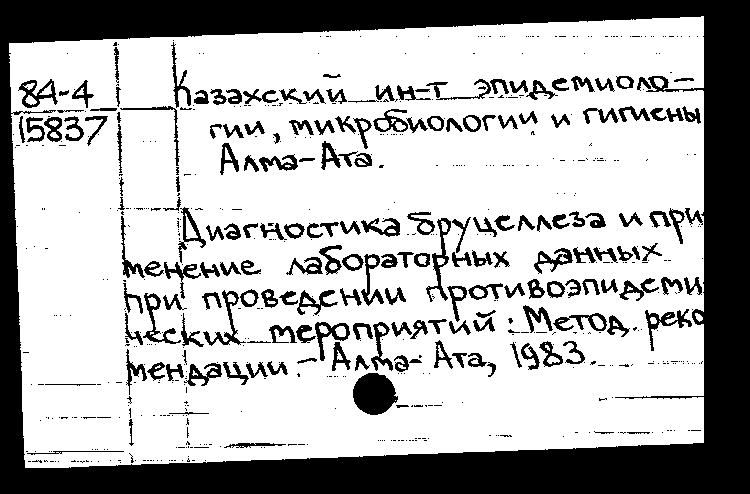 84-4
15837
Казахский ин-т эпидемиоло-
гии, микробиологии и гигиены
Алма-Ата.
Диагностика бруцеллеза и при
менение лабораторных данных
при проведении противоэпидеми
ческих мероприятий: Метод. реко
мендации.- Алма-Ата, 1983.